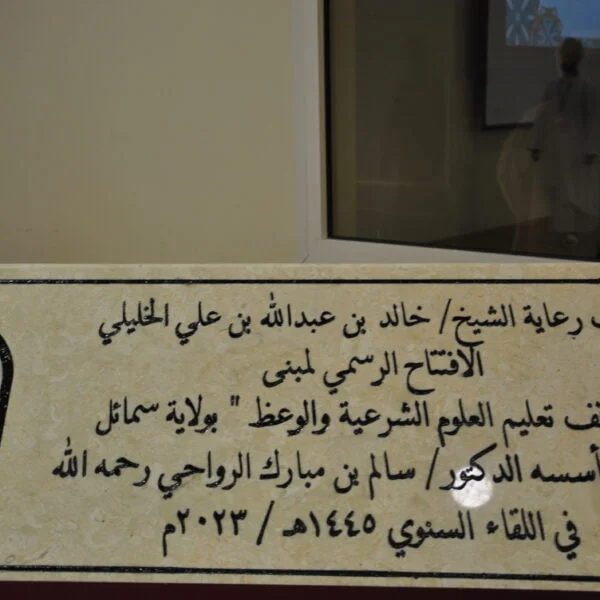 رعاية الشيخ/ خالد بن عبدالله بن علي الخليلي
الافتتاح الرسمي لمبنى
تعليم العلوم الشرعية والوعظ " بولاية سمائل
أسسه الدكتور/ سالم بن مبارك الرواحي رحمه الله
في اللقاء السنوي ١٤٤٥هـ / ٢٠٢٣م